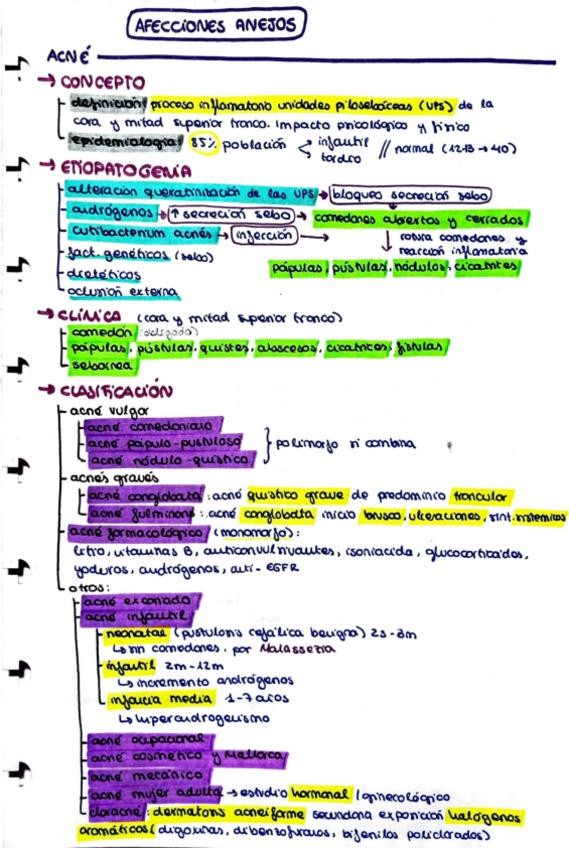 AFECCIONES ANEJOS
ACNÉ
→ CONCEPTO
definición: proceso inflamatorio unidades pilosebáceas (UPS) de la
cara y mitad superior tronco. Impacto psicológico y físico
epidemiología: 85% población < infantil // normal (12-13 → 40)
tardío
→ ETIOPATOGENIA
alteración queratinización de las UPS → bloqueo secreción sebo
andrógenos → ↑ secreción sebo → comedones abiertos y cerrados
cutibacterium acnés → infección → ↓ rotura comedones y
reacción inflamatoria
fact. genéticos (sebo)
pápulas, pústulas, nódulos, cicatrices
dietéticos
oclusión externa
→ CLÍNICA (cara y mitad superior tronco)
comedón (obligado)
pápulas, pústulas, quistes, abscesos, cicatrices, fístulas
seborrea
→ CLASIFICACIÓN
acné vulgar
acné comedoniano
acné pápulo-pustuloso } polimorfo si combina
acné nódulo-quístico
acnés graves
acné conglobata: acné quístico grave de predominio troncular
acné fulminans: acné conglobata inicio brusco, ulceraciones, sínt. sistémicos
acné farmacológico (monomorfo):
litio, vitaminas B, anticonvulsivantes, isoniacida, glucocorticoides,
yoduros, andrógenos, anti-EGFR
otros:
acné excoriado
acné infantil
neonatal (pustulosis cefálica benigna) 2s-3m
↳ sin comedones. por Malassezia
infantil 2m-12m
↳ incremento andrógenos
infancia media 1-7 años
↳ hiperandrogenismo
acné ocupacional
acné cosmético y Mallorca
acné mecánico
acné mujer adulta → estudio hormonal / ginecológico
cloracné: dermatosis acneiforme secundaria exposición halógenos
aromáticos (digoxinas, dibenzofuranos, bifenilos policlorados)